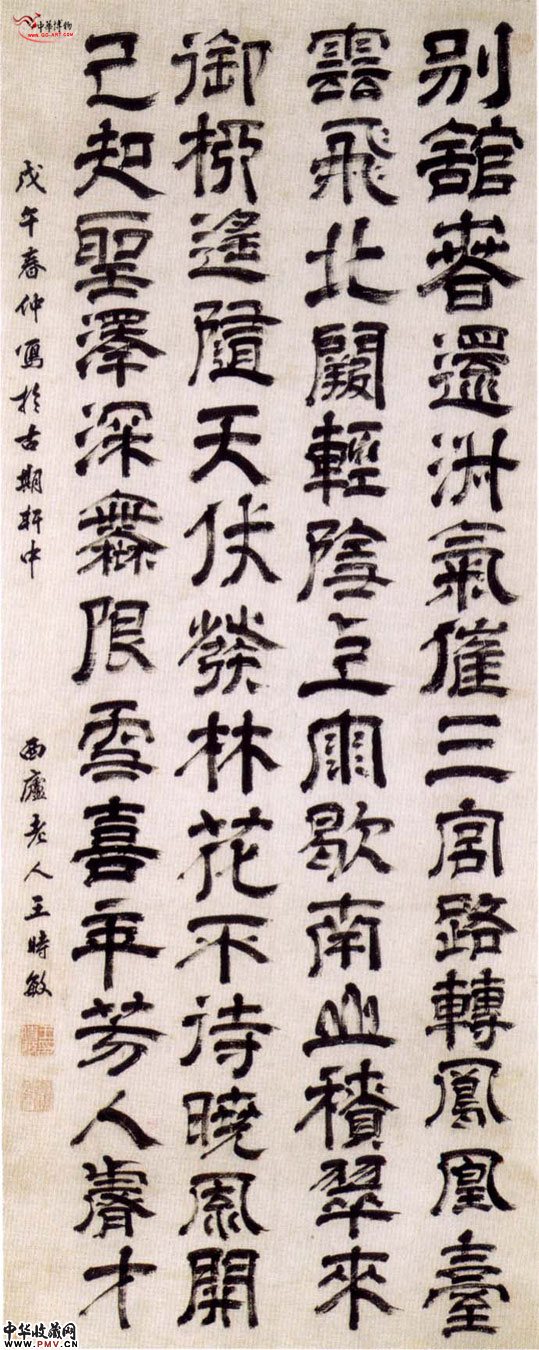 中華博物
WWW.GG-ART.COM
別舘春還淑氣催三宮路轉鳳凰臺
雲飛北闕輕陰雨歇南山積翠來
御柳遙隨天仗發林花不待曉風開
已知聖澤深無限更喜年芳入睿才
戊午春仲寫於古期軒中
西廬老人王時敏
中华收藏网
www.PMV.CN